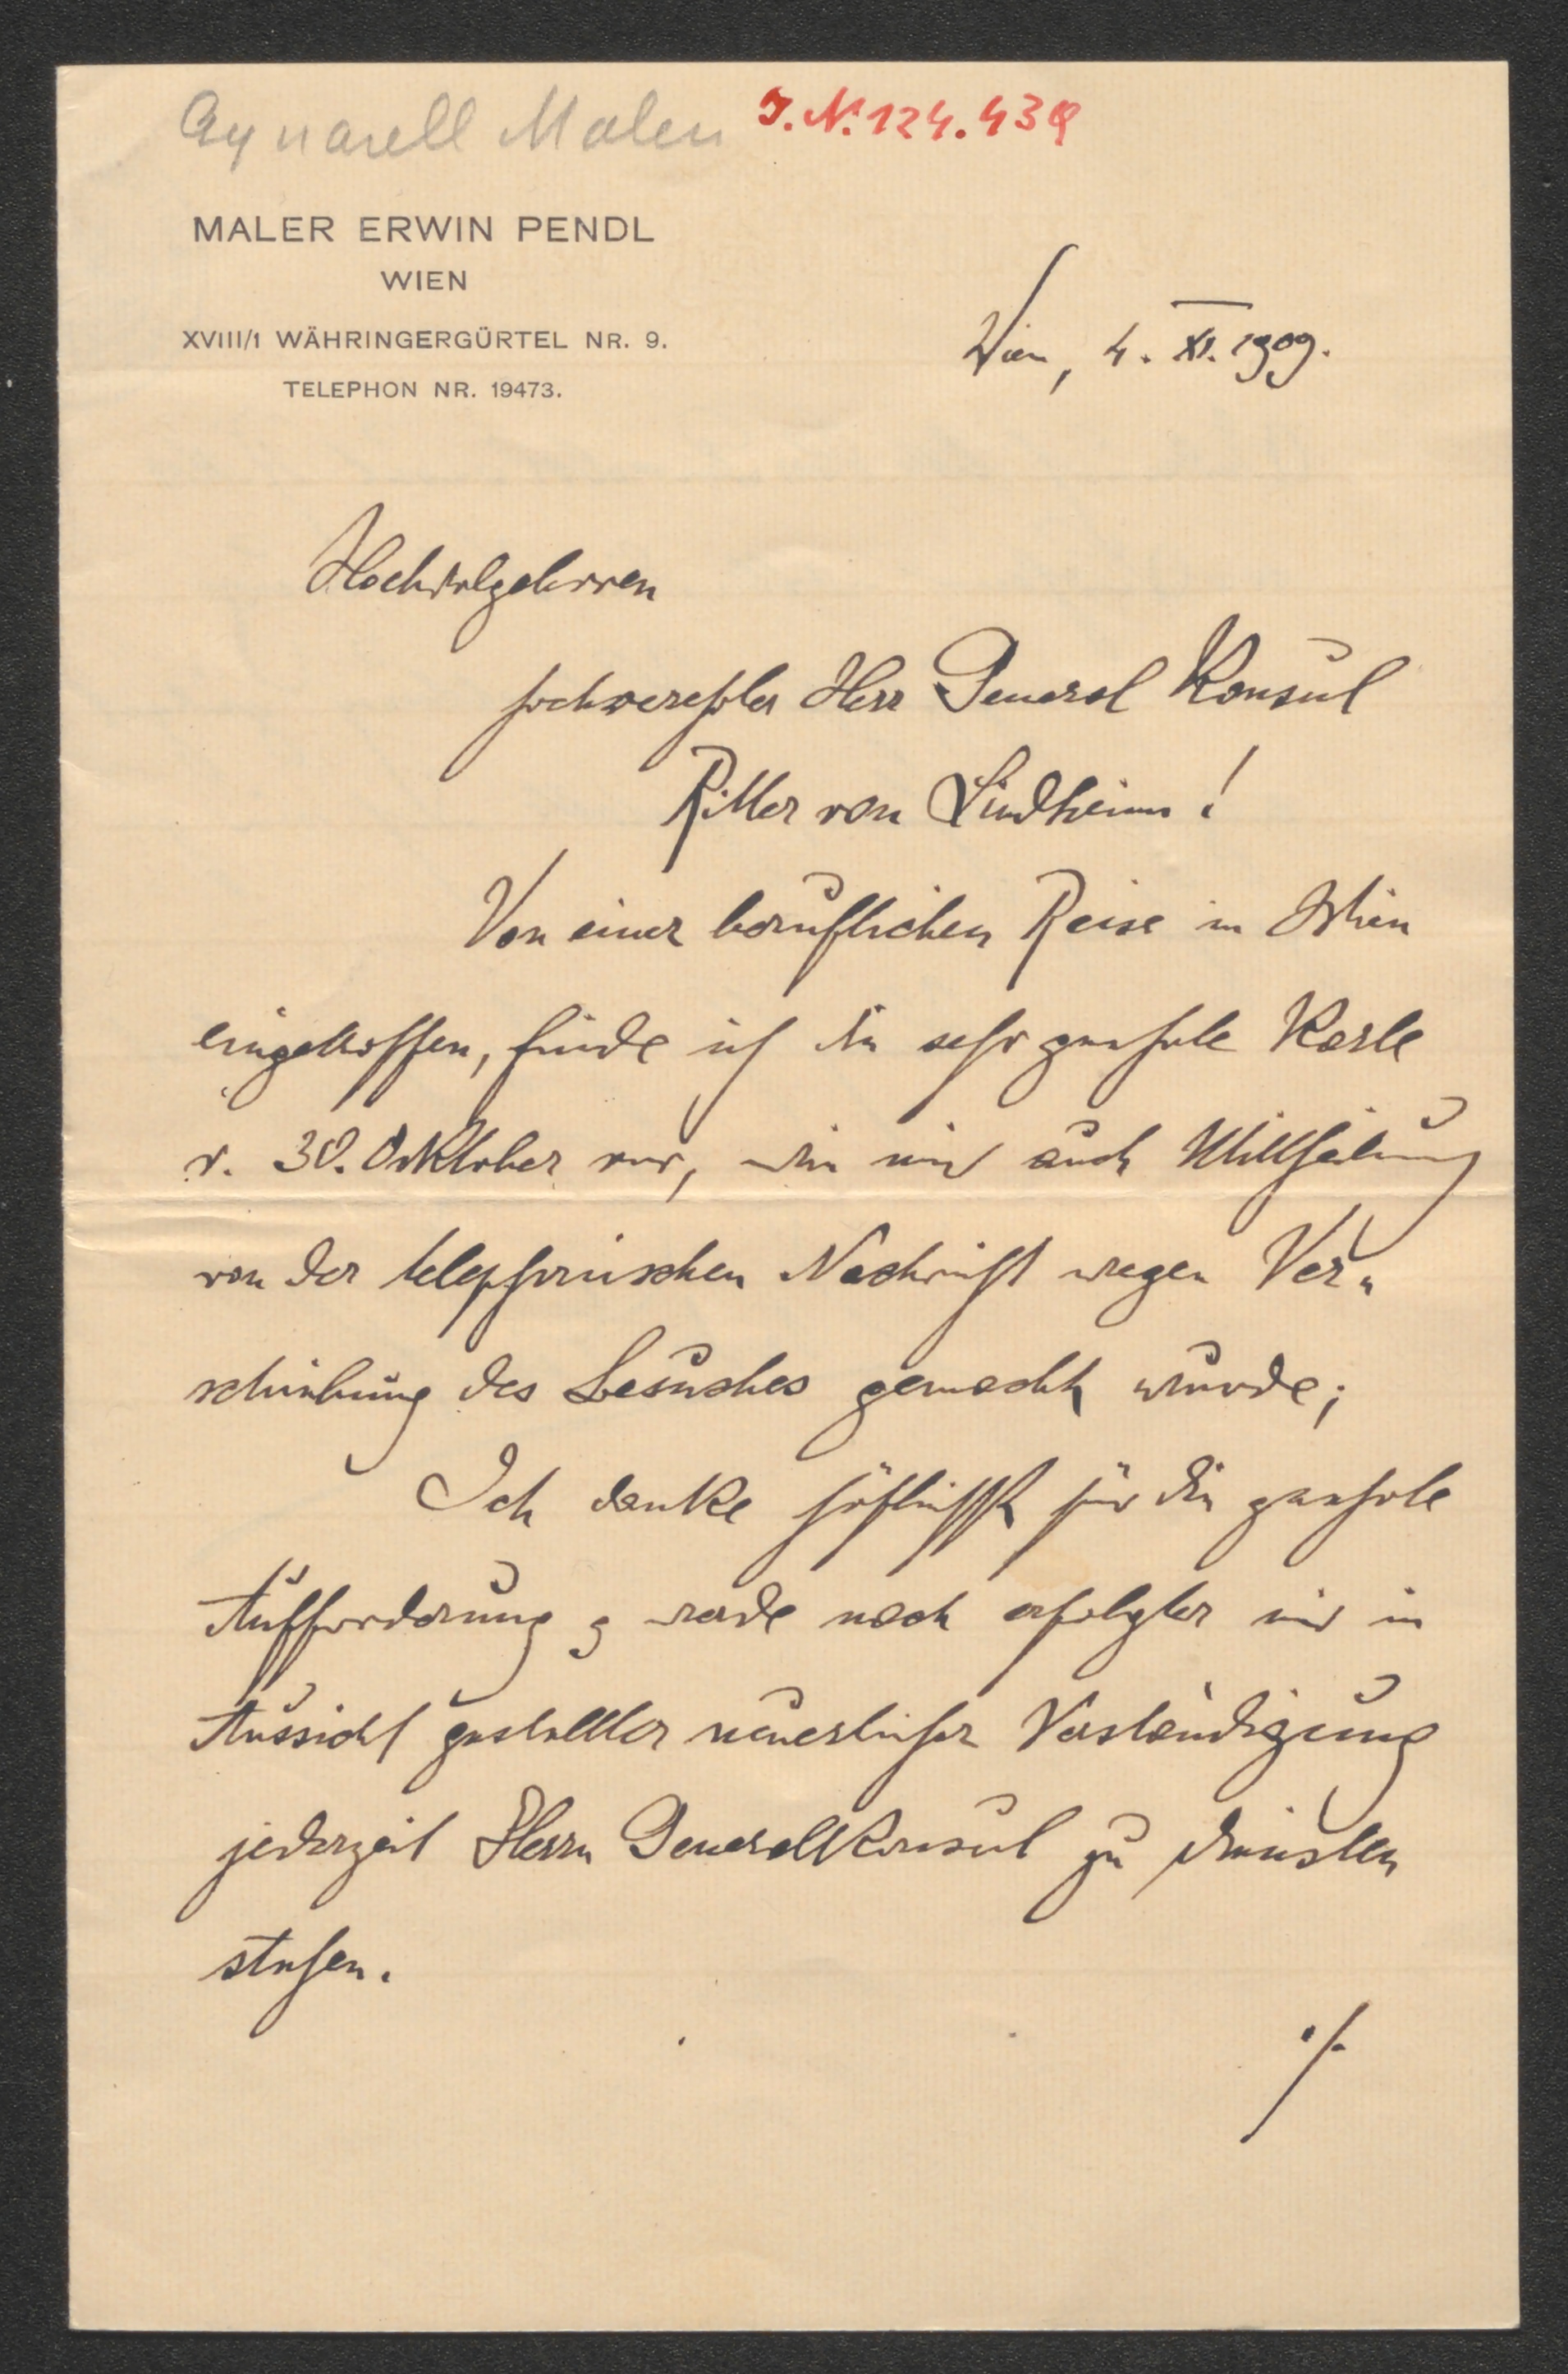 Aquarell Maler J. N. 124.439
MALER ERWIN PENDL
WIEN
XVIII/1 WÄHRINGERGÜRTEL NR. 9.
TELEPHON NR. 19473.
Wien, 4. XI. 1909.
Hochwolgeboren
hochverehrter Herr General Konsul
Ritter von Lindheim!
Von einer beruflichen Reise in Wien
eingetroffen, finde ich die sehr geehrte Karte
v. 30. Oktober vor, wie mir auch Mittheilung
von der telephonischen Nachricht wegen Ver-
schiebung des Besuches gemacht wurde;
Ich danke höflichst für die geehrte
Aufforderung & werde nach erfolgter mir in
Aussicht gestellter neuerlicher Verständigung
jederzeit Herrn Generalkonsul zu Diensten
stehen.
./.